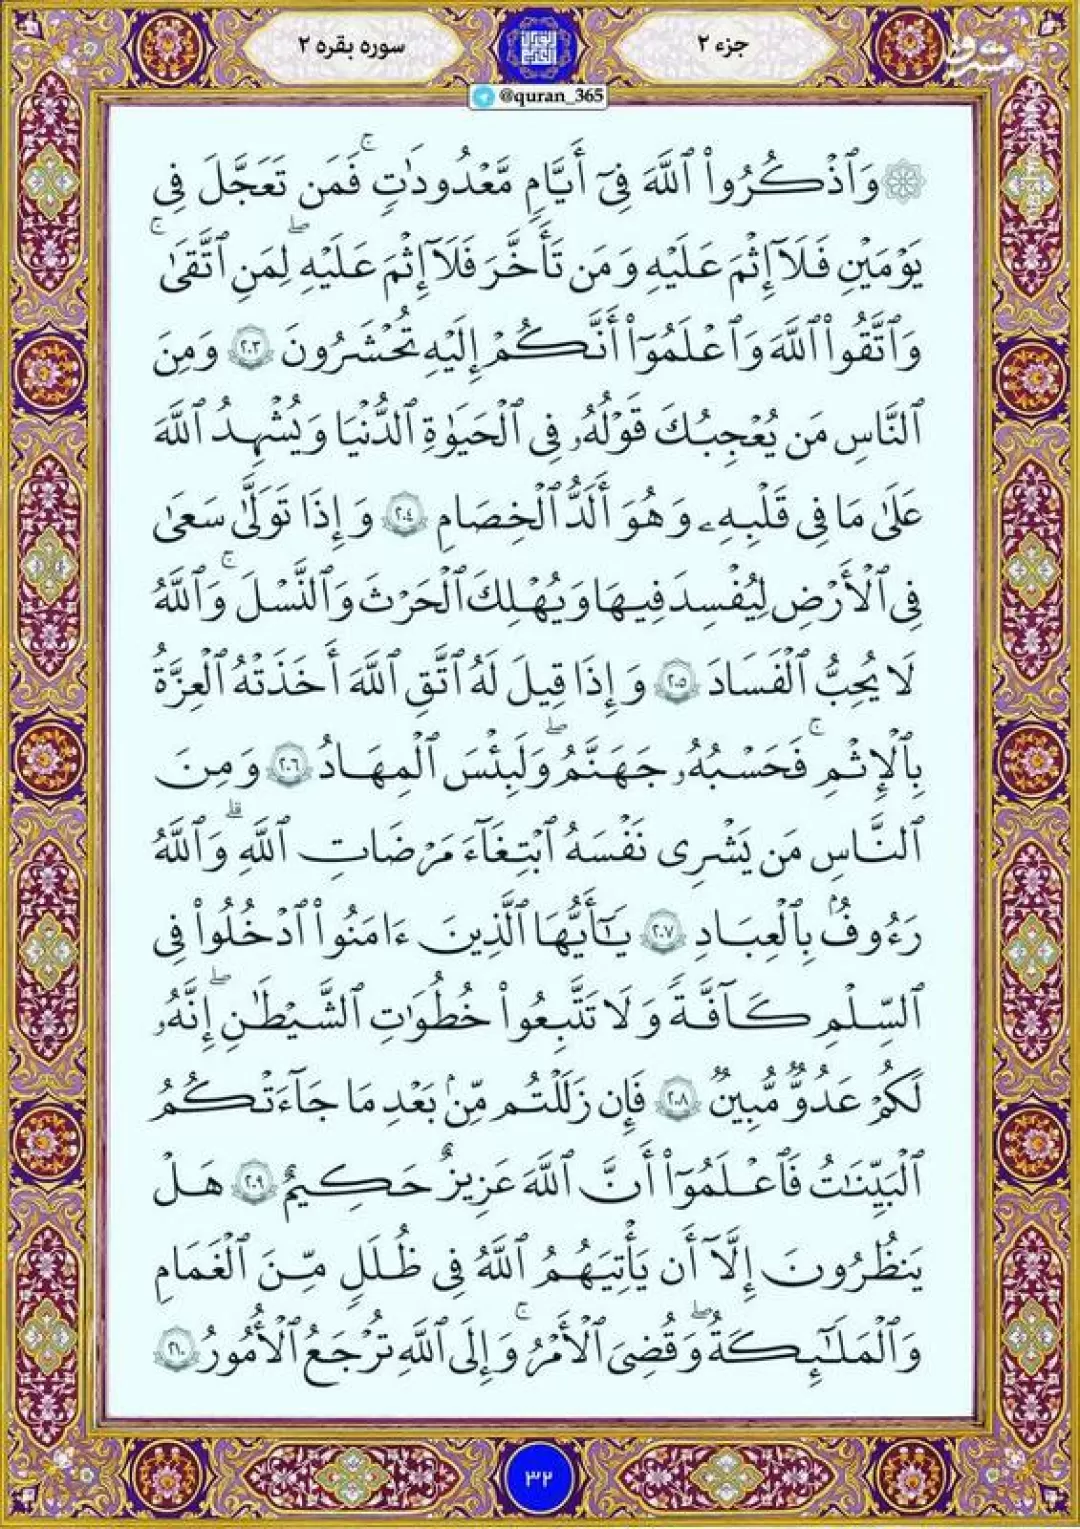 سوره بقره ۲
جزء ۲
@quran_365
۞ وَٱذْكُرُوا۟ ٱللَّهَ فِىٓ أَيَّامٍ مَّعْدُودَٰتٍ ۚ فَمَن تَعَجَّلَ فِى
يَوْمَيْنِ فَلَآ إِثْمَ عَلَيْهِ وَمَن تَأَخَّرَ فَلَآ إِثْمَ عَلَيْهِ ۖ لِمَنِ ٱتَّقَىٰ ۗ
وَٱتَّقُوا۟ ٱللَّهَ وَٱعْلَمُوٓا۟ أَنَّكُمْ إِلَيْهِ تُحْشَرُونَ ٢٠٣ وَمِنَ
ٱلنَّاسِ مَن يُعْجِبُكَ قَوْلُهُۥ فِى ٱلْحَيَوٰةِ ٱلدُّنْيَا وَيُشْهِدُ ٱللَّهَ
عَلَىٰ مَا فِى قَلْبِهِۦ وَهُوَ أَلَدُّ ٱلْخِصَامِ ٢٠٤ وَإِذَا تَوَلَّىٰ سَعَىٰ
فِى ٱلْأَرْضِ لِيُفْسِدَ فِيهَا وَيُهْلِكَ ٱلْحَرْثَ وَٱلنَّسْلَ ۚ وَٱللَّهُ
لَا يُحِبُّ ٱلْفَسَادَ ٢٠٥ وَإِذَا قِيلَ لَهُ ٱتَّقِ ٱللَّهَ أَخَذَتْهُ ٱلْعِزَّةُ
بِٱلْإِثْمِ ۚ فَحَسْبُهُۥ جَهَنَّمُ ۖ وَلَبِئْسَ ٱلْمِهَادُ ٢٠٦ وَمِنَ
ٱلنَّاسِ مَن يَشْرِى نَفْسَهُ ٱبْتِغَآءَ مَرْضَاتِ ٱللَّهِ ۗ وَٱللَّهُ
رَءُوفٌۢ بِٱلْعِبَادِ ٢٠٧ يَٰٓأَيُّهَا ٱلَّذِينَ ءَامَنُوا۟ ٱدْخُلُوا۟ فِى
ٱلسِّلْمِ كَآفَّةً وَلَا تَتَّبِعُوا۟ خُطُوَٰتِ ٱلشَّيْطَٰنِ ۖ إِنَّهُۥ
لَكُمْ عَدُوٌّ مُّبِينٌ ٢٠٨ فَإِن زَلَلْتُم مِّنۢ بَعْدِ مَا جَآءَتْكُمُ
ٱلْبَيِّنَٰتُ فَٱعْلَمُوٓا۟ أَنَّ ٱللَّهَ عَزِيزٌ حَكِيمٌ ٢٠٩ هَلْ
يَنظُرُونَ إِلَّآ أَن يَأْتِيَهُمُ ٱللَّهُ فِى ظُلَلٍ مِّنَ ٱلْغَمَامِ
وَٱلْمَلَٰٓئِكَةُ وَقُضِىَ ٱلْأَمْرُ ۚ وَإِلَى ٱللَّهِ تُرْجَعُ ٱلْأُمُورُ ٢١٠
۳۲